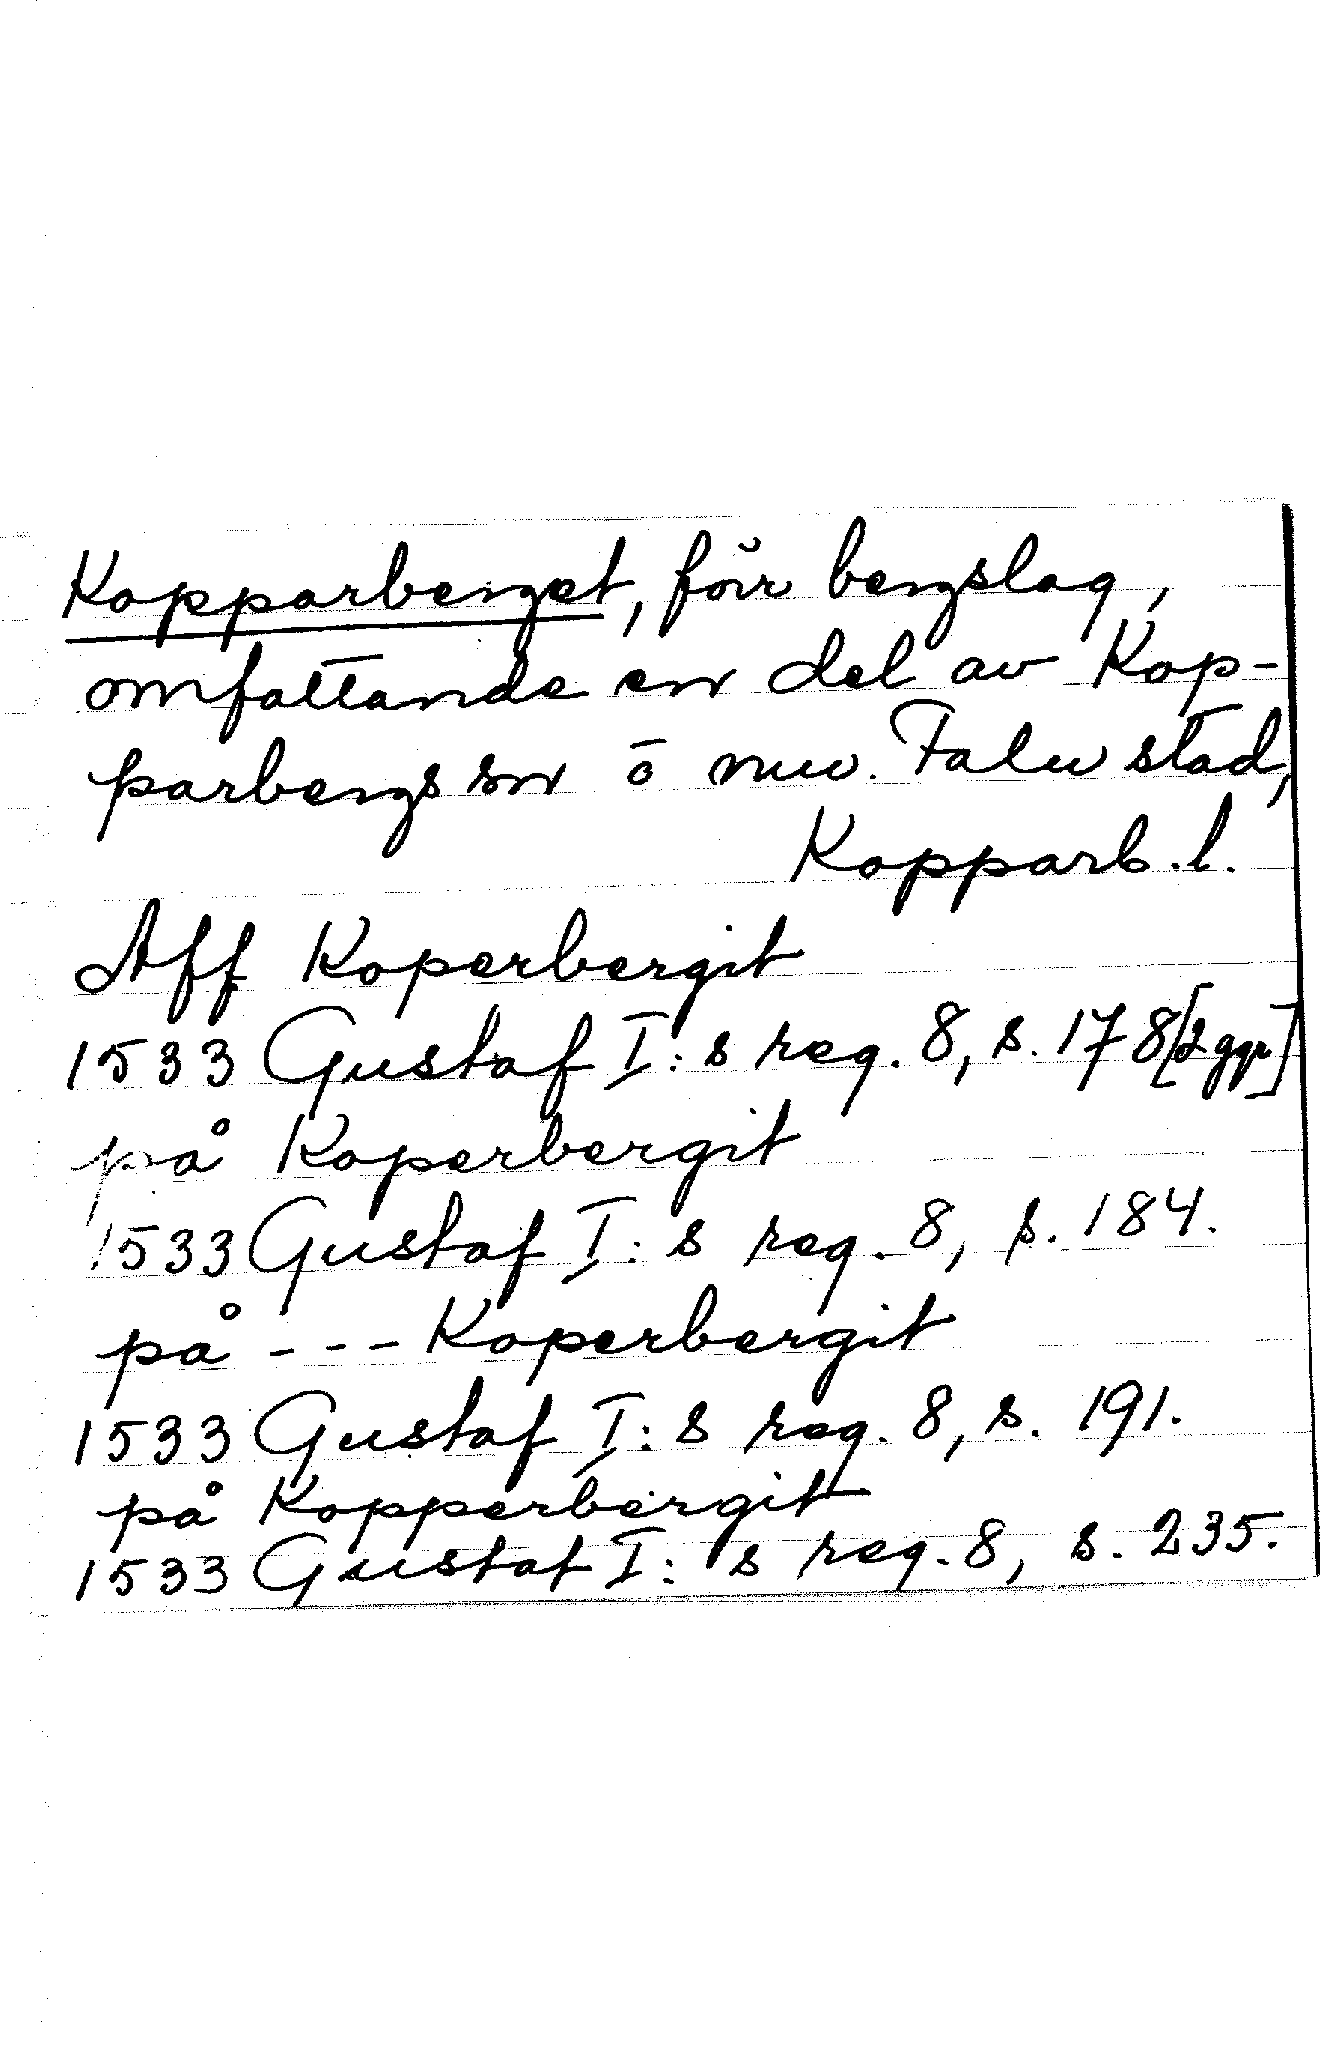 Kopparberget, förr bergslag,
omfattande en del av Kop-
parbergs sn o nuv. Falu stad,
Kopparb. l.
Aff Koperbergit
1533 Gustaf I:s reg. 8, s. 178 [2 ggr]
på Koperbergit
1533 Gustaf I:s reg. 8, s. 184.
på --- Koperbergit
1533 Gustaf I:s reg. 8, s. 191.
på Kopperbergit
1533 Gustaf I:s reg. 8, s. 235.